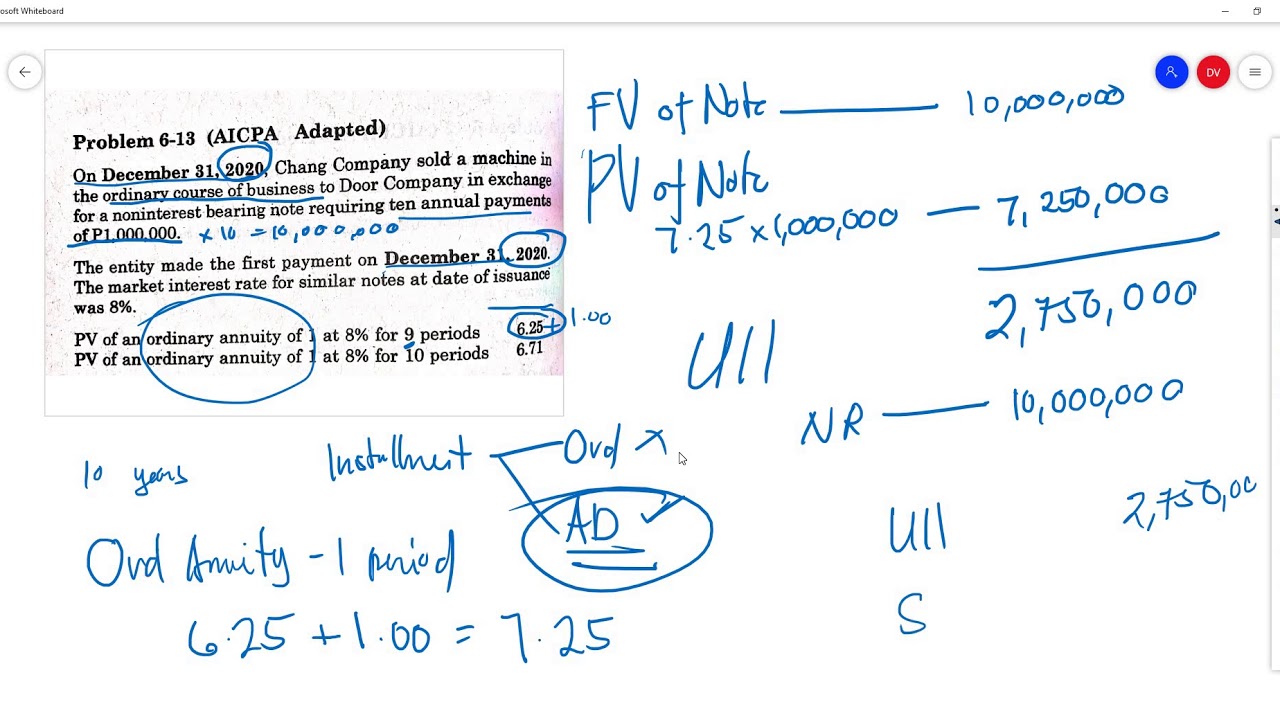 osoft Whiteboard
DV
Problem 6-13 (AICPA Adapted)
On December 31, 2020, Chang Company sold a machine in
the ordinary course of business to Door Company in exchange
for a noninterest bearing note requiring ten annual payments
of P1,000,000. × 10 = 10,000,000
The entity made the first payment on December 31, 2020.
The market interest rate for similar notes at date of issuance
was 8%.
PV of an ordinary annuity of 1 at 8% for 9 periods 6.25 + 1.00
PV of an ordinary annuity of 1 at 8% for 10 periods 6.71
FV of Note — 10,000,000
PV of Note
7.25 × 1,000,000 — 7,250,000
2,750,000
UII
NR — 10,000,000
UII 2,750,00
S
10 years
Installment Ord ×
AD ✓
Ord Annuity - 1 period
6.25 + 1.00 = 7.25